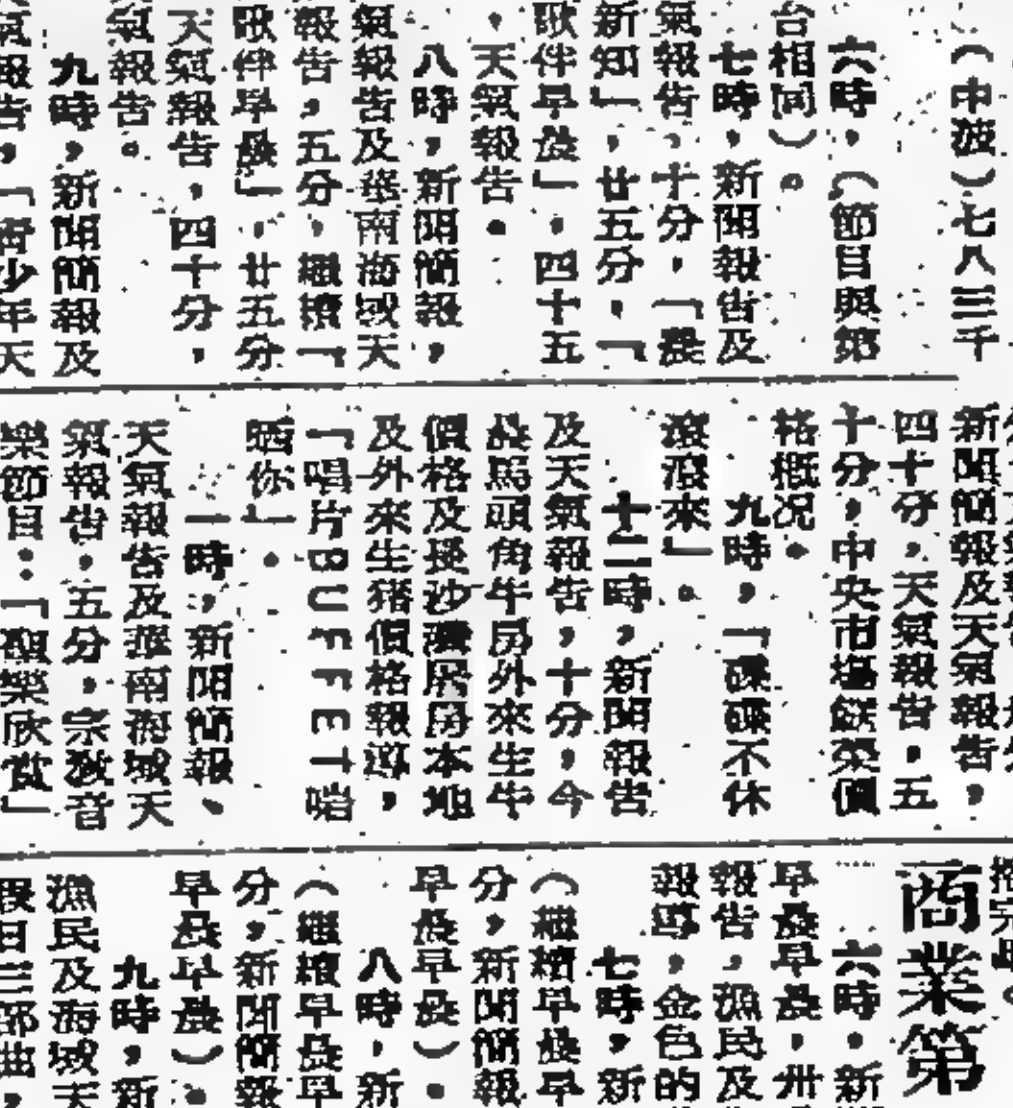 （中波）七八三千
六時，（節目與第
台相同）。
七時，新聞報告及
氣報告、十分，「農
新知」，廿五分，「
歌伴早晨」，四十五
，天氣報告。
八時，新聞簡報，
氣報告及華南海域天
報告，五分，繼續「
歌伴早晨」，廿五分
天氣報告，四十分，
氣報告。
九時，新聞簡報及
氣報告，「青少年天
新聞簡報及天氣報告，
四十分，天氣報告，五
十分，中央市場餸菜價
格概況。
九時，「碟碟不休
滾滾來」。
十二時，新聞報告
及天氣報告，十分，今
長馬頭角牛房外來生牛
價格及長沙灣屠房本地
及外來生猪價格報導，
「唱片BUFFET啱
晒你」。
一時，新聞簡報、
天氣報告及華南海域天
氣報告，五分，宗教音
樂節目：「頌樂欣賞」
商業第
六時，新
早晨早晨，卅
報告，漁民及
報導，金色的
七時，新
（繼續早晨早
分，新聞簡報
早晨早晨）。
八時，新
（繼續早晨早
分，新聞簡報
早晨早晨）。
九時，新
漁民及海域天